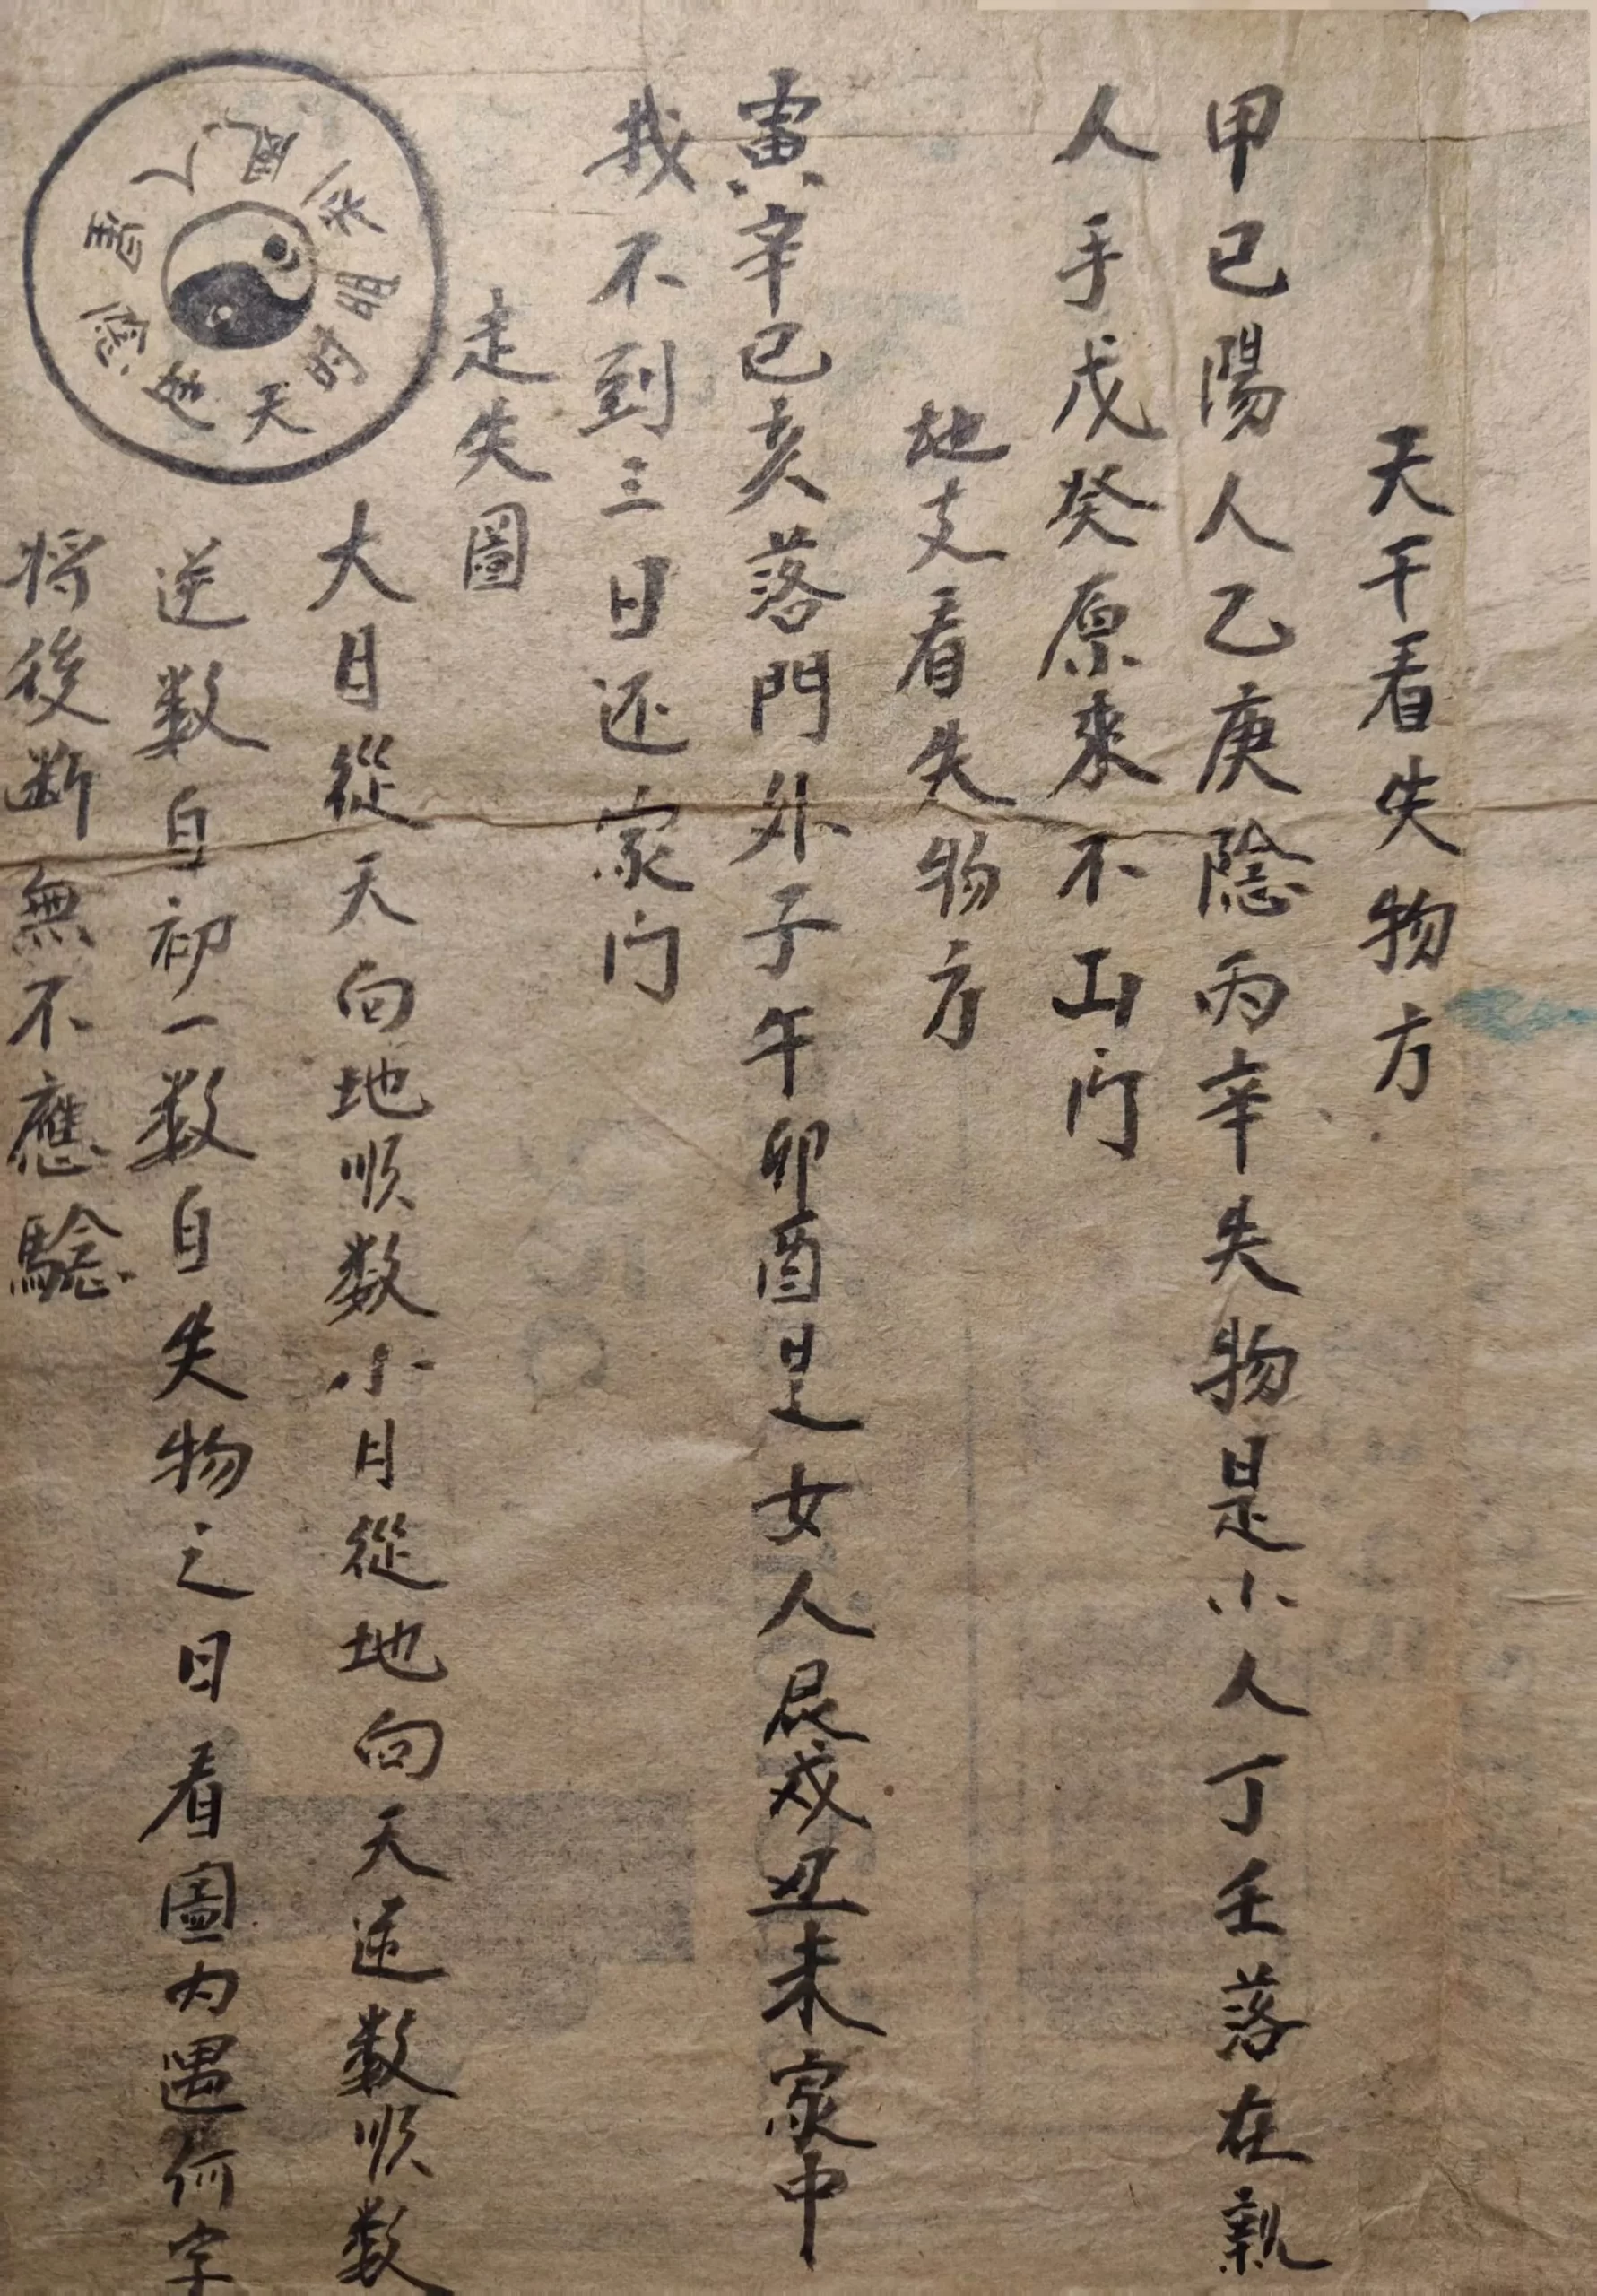 天干看失物方
甲己陽人乙庚陰丙辛失物是小人丁壬落在親
人手戊癸原来不出门
地支看失物方
寅辛巳亥落門外子午卯酉是女人辰戌丑未家中
找不到三日还家门
走失圖
大月從天向地順数小月從地向天逆数順数
逆数自初一数自失物之日看圖内遇何字
将後断無不應驗
天时明
人
地